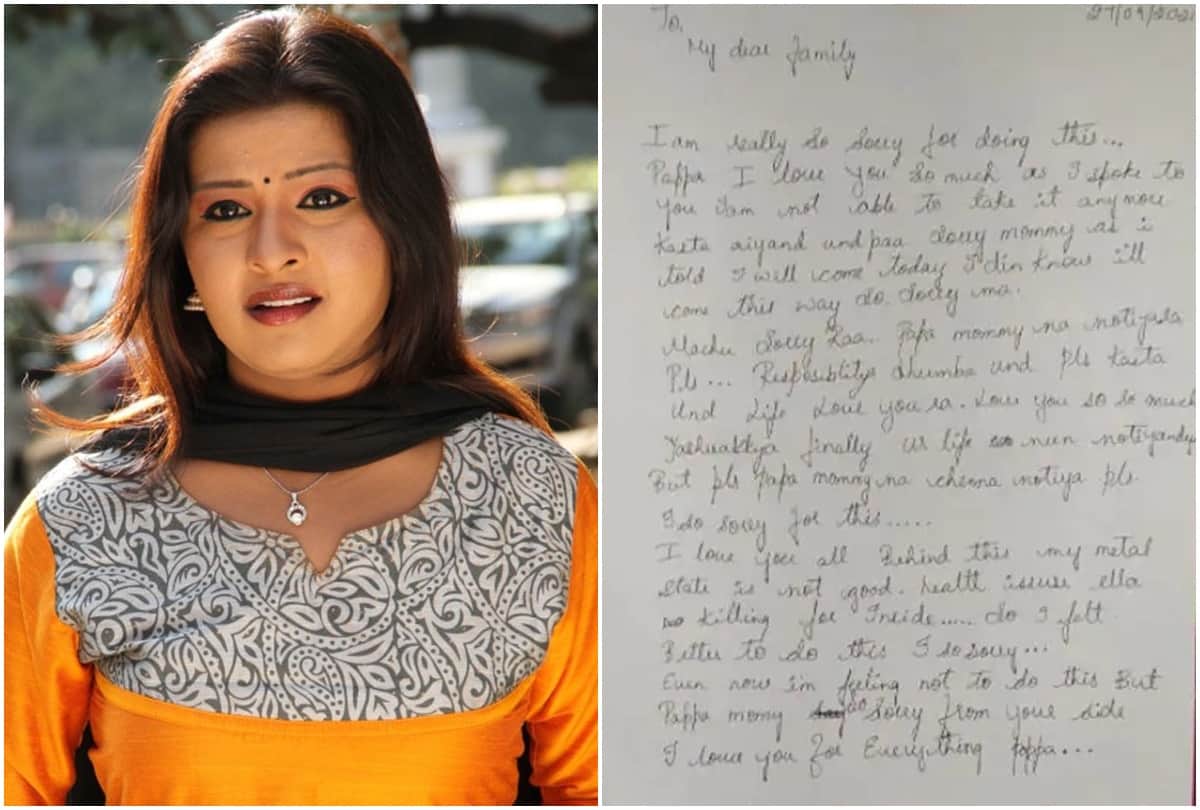 27/09/2021
To,
My dear family
I am really so sorry for doing this...
Pappa I love you so much as I spoke to
you iam not able to take it anymore
Kasta aiyand undpaa sorry mommy as i
told I will come today I din know i'll
come this way so sorry ma.
Machu sorry Raa.. Papa mommy na notiyada
Pls... Resposiblitys dhumba und pls kasta
Und life love you ra. Love you so so much
finally ur life neen notiyandy
But pls Papa mommy na chenna notiya pls.
I so sorry for this.....
I love you all Behind this my metal
state is not good. health issuse ella
killing for Inside..... So I felt
Better to do this I so sorry...
Even now im feeling not to do this But
Pappa momy sorry from your side
I love you for Everything Pappa...